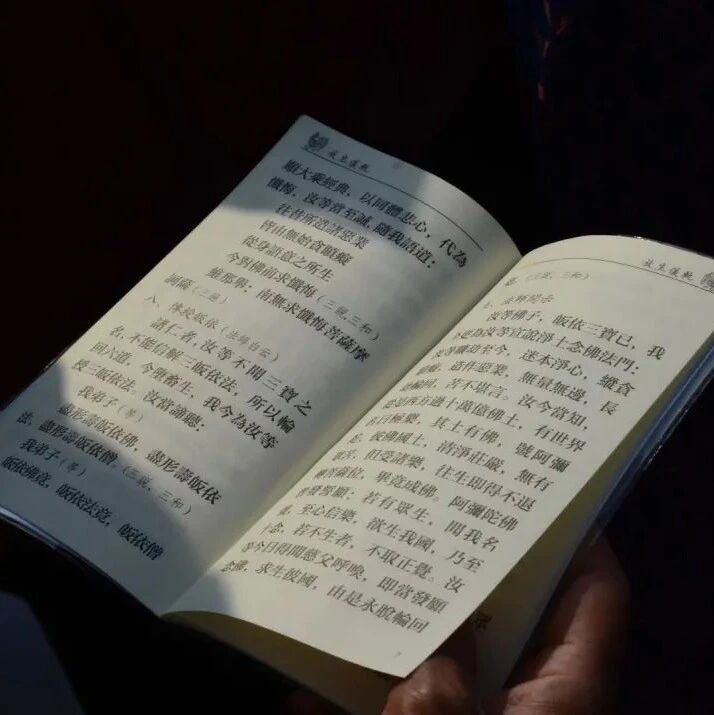 放生儀軌
顯大乘經典，以同體悲心，代為
懺悔，汝等當至誠，隨我語道：
往昔所造諸惡業
皆由無始貪瞋癡
從身語意之所生
今對佛前求懺悔（三說，三和）
飯那畢；南無求懺悔菩薩摩
訶薩（三稱）
八、傳授皈依（法師白云）
諸仁者，汝等不聞三寶之
名，不能信解三皈依法，所以輪
回六道，今墮畜生，我今為汝等
授三皈依法。汝當諦聽：
我弟子（等）
盡形壽皈依佛，盡形壽皈依
法，盡形壽皈依僧（三說，三和）
我弟子（等）
皈依佛竟，皈依法竟，皈依僧
放生儀軌
（三說，三和）
法師開示
汝等佛子，皈依三寶已，我
為汝等宣說淨土念佛法門：
汝等曠劫至今，迷本淨心，縱貪
造作惡業，無量無邊，長
輪回，苦不堪言。汝今當知，
是西方過十萬億佛土，有世界
名曰極樂，其土有佛，號阿彌
彼佛國土，清淨莊嚴，無有
但受諸樂，往生即得不退
菩薩位，畢竟成佛。阿彌陀佛
昔發誓願：若有眾生，聞我名
至心信樂，欲生我國，乃至
十念，若不生者，不取正覺。汝
等今日得聞慈父呼喚，即當發願
念佛，求生彼國，由是永脫輪回
7